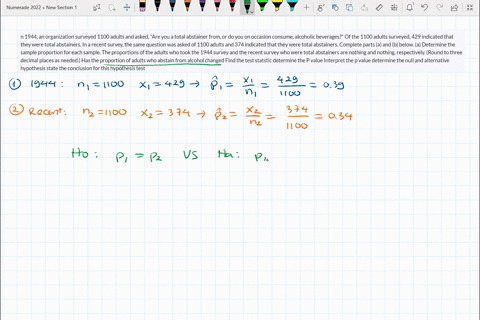 Numerade 2022 » New Section 1
n 1944, an organization surveyed 1100 adults and asked, "Are you a total abstainer from, or do you on occasion consume, alcoholic beverages?" Of the 1100 adults surveyed, 429 indicated that
they were total abstainers. In a recent survey, the same question was asked of 1100 adults and 374 indicated that they were total abstainers. Complete parts (a) and (b) below. (a) Determine the
sample proportion for each sample. The proportions of the adults who took the 1944 survey and the recent survey who were total abstainers are nothing and nothing, respectively. (Round to three
decimal places as needed.) Has the proportion of adults who abstain from alcohol changed Find the test statistic determine the P value Interpret the p-value determine the null and alternative
hypothesis state the conclusion for this hypothesis test
① 1944: n₁ = 1100 x₁ = 429 → p̂₁ = x₁/n₁ = 429/1100 = 0.39
② Recent: n₂ = 1100 x₂ = 374 → p̂₂ = x₂/n₂ = 374/1100 = 0.34
Ho: p₁ = p₂ VS Ha: p₁